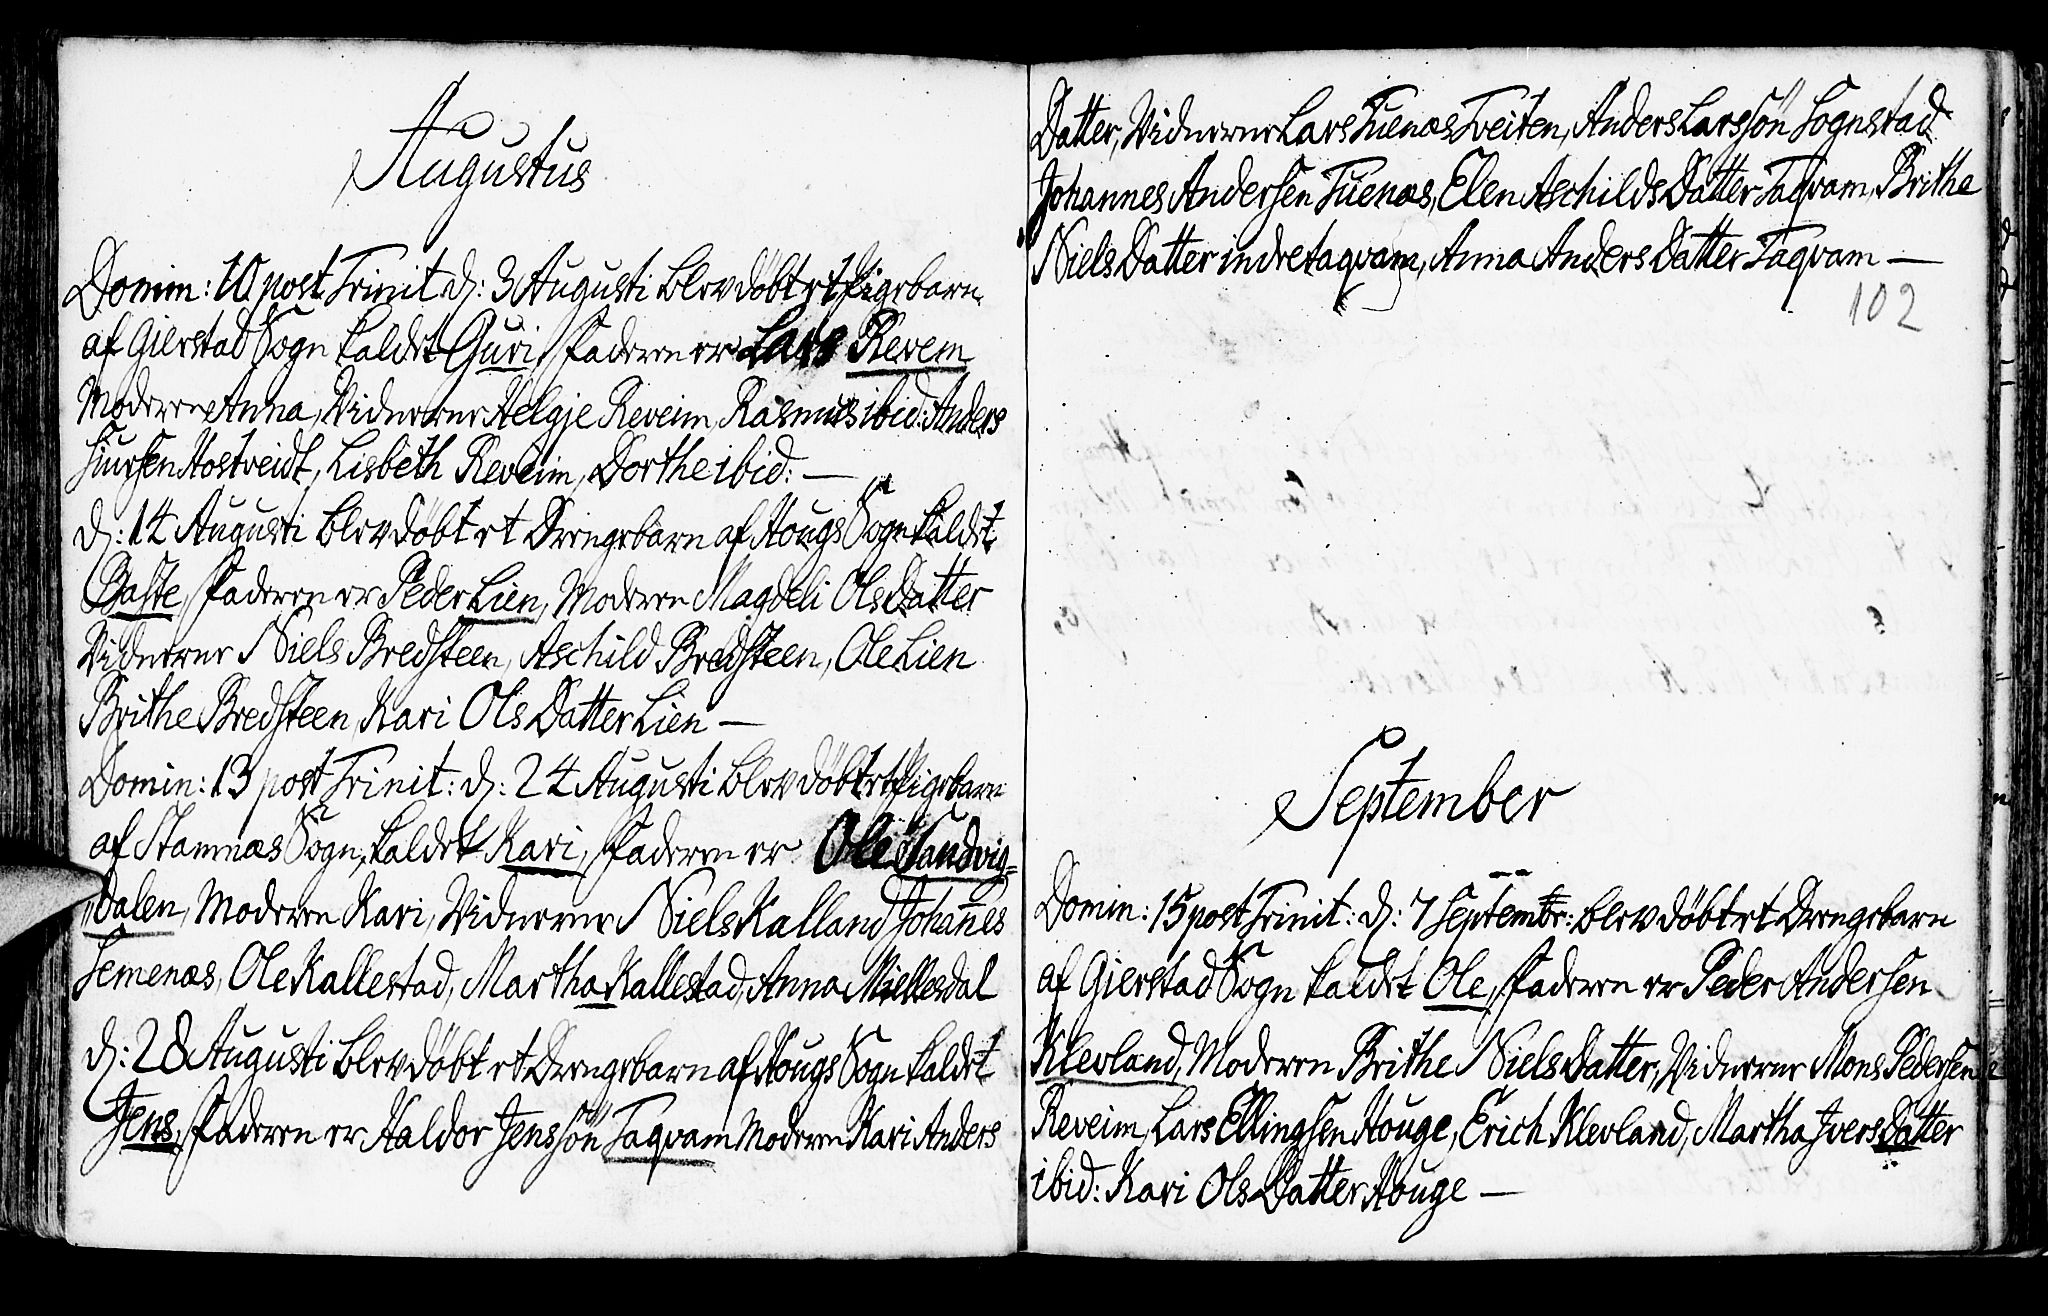 Augustus
Domin: 10 post Trinit d: 3 Augusti blev döbt et Pigebarn
af Gierstad Sogn kaldet Guri, Faderen er Lars Revem
Moderen Anna, Vidnerne Helgje Reveim, Rasmus ibid: Anders
Siursen Hostveidt, Lisbeth Reveim, Dorthe ibid: —
d: 14 Augusti blev döbt et Drengebarn af Hougs Sogn kaldet
Baste, Faderen er Peder Lien, Moderen Magdeli Ols Datter
Vidnerne Niels Bredsteen, Aschild Bredsteen, Ole Lien
Brithe Bredsteen, Kari Ols Datter Lien —
Domin: 13 post Trinit: d: 24 Augusti blev döbt et Pigebarn
af Stamnæs Sogn, kaldet Kari, Faderen er Ole Sandvig=
Dalen, Moderen Kari, Vidnerne Niels Kalland Johan̄es
Semenæs, Ole Kallestad, Martha Kallestad, Anna Miellesdal
d: 28 Augusti blev döbt et Drengebarn af Hougs Sogn kaldet
Jens, Faderen er Haldor Jenssön Taqvam Moderen Kari Anders
Datter, Vidnerne Lars Tuenæs Tveiten, Anders Larssön Sognstad
Johannes Andersen Tuenæs, Elen Aschilds Datter Taqvam, Brithe
Niels Datter indretaqvam, Anna Anders Datter Taqvam —
102
September
Domin: 15 post Trinit: d: 7 Septembr: blev döbt et Drengebarn
af Gierstad Sogn kaldet Ole, Faderen er Peder Andersen
Klevland, Moderen Brithe Niels Datter, Vidnerne Mons Pedersen
Reveim, Lars Ellingsen Houge, Erich Klevland, Martha Ivers Datter
ibid: Kari Ols Datter Houge —